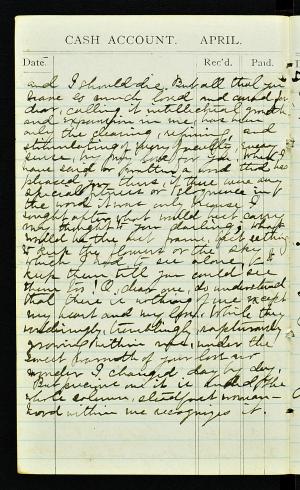 CASH ACCOUNT. APRIL.
Date. Rec'd. Paid.
and I should die. But all that you
have so much loved and cared for
dear, calling it intellectual growth
and expansion in me, has been
only the clearing, refining, and
stimulating of every faculty, every
sense, by my love for you. When I
have said or written a word that has
pleased you thus, if there were any
special or in
the word it was only because I
sought after what would best carry
my thought to you darling, what
would be the best frame, best setting
to keep the flowers or the sky
which I must see alone, to
keep them till you could see
them too! O, dear one, do understand
that there is nothing of me except
my heart and my love. While they
wonderingly, tremblingly, rapturously
growing within me, under the
sweet warmth of your love, no
wonder I changed day by day.
But precious one, it is ended, the
whole solemn, steadfast woman-
hood within me recognizes it.